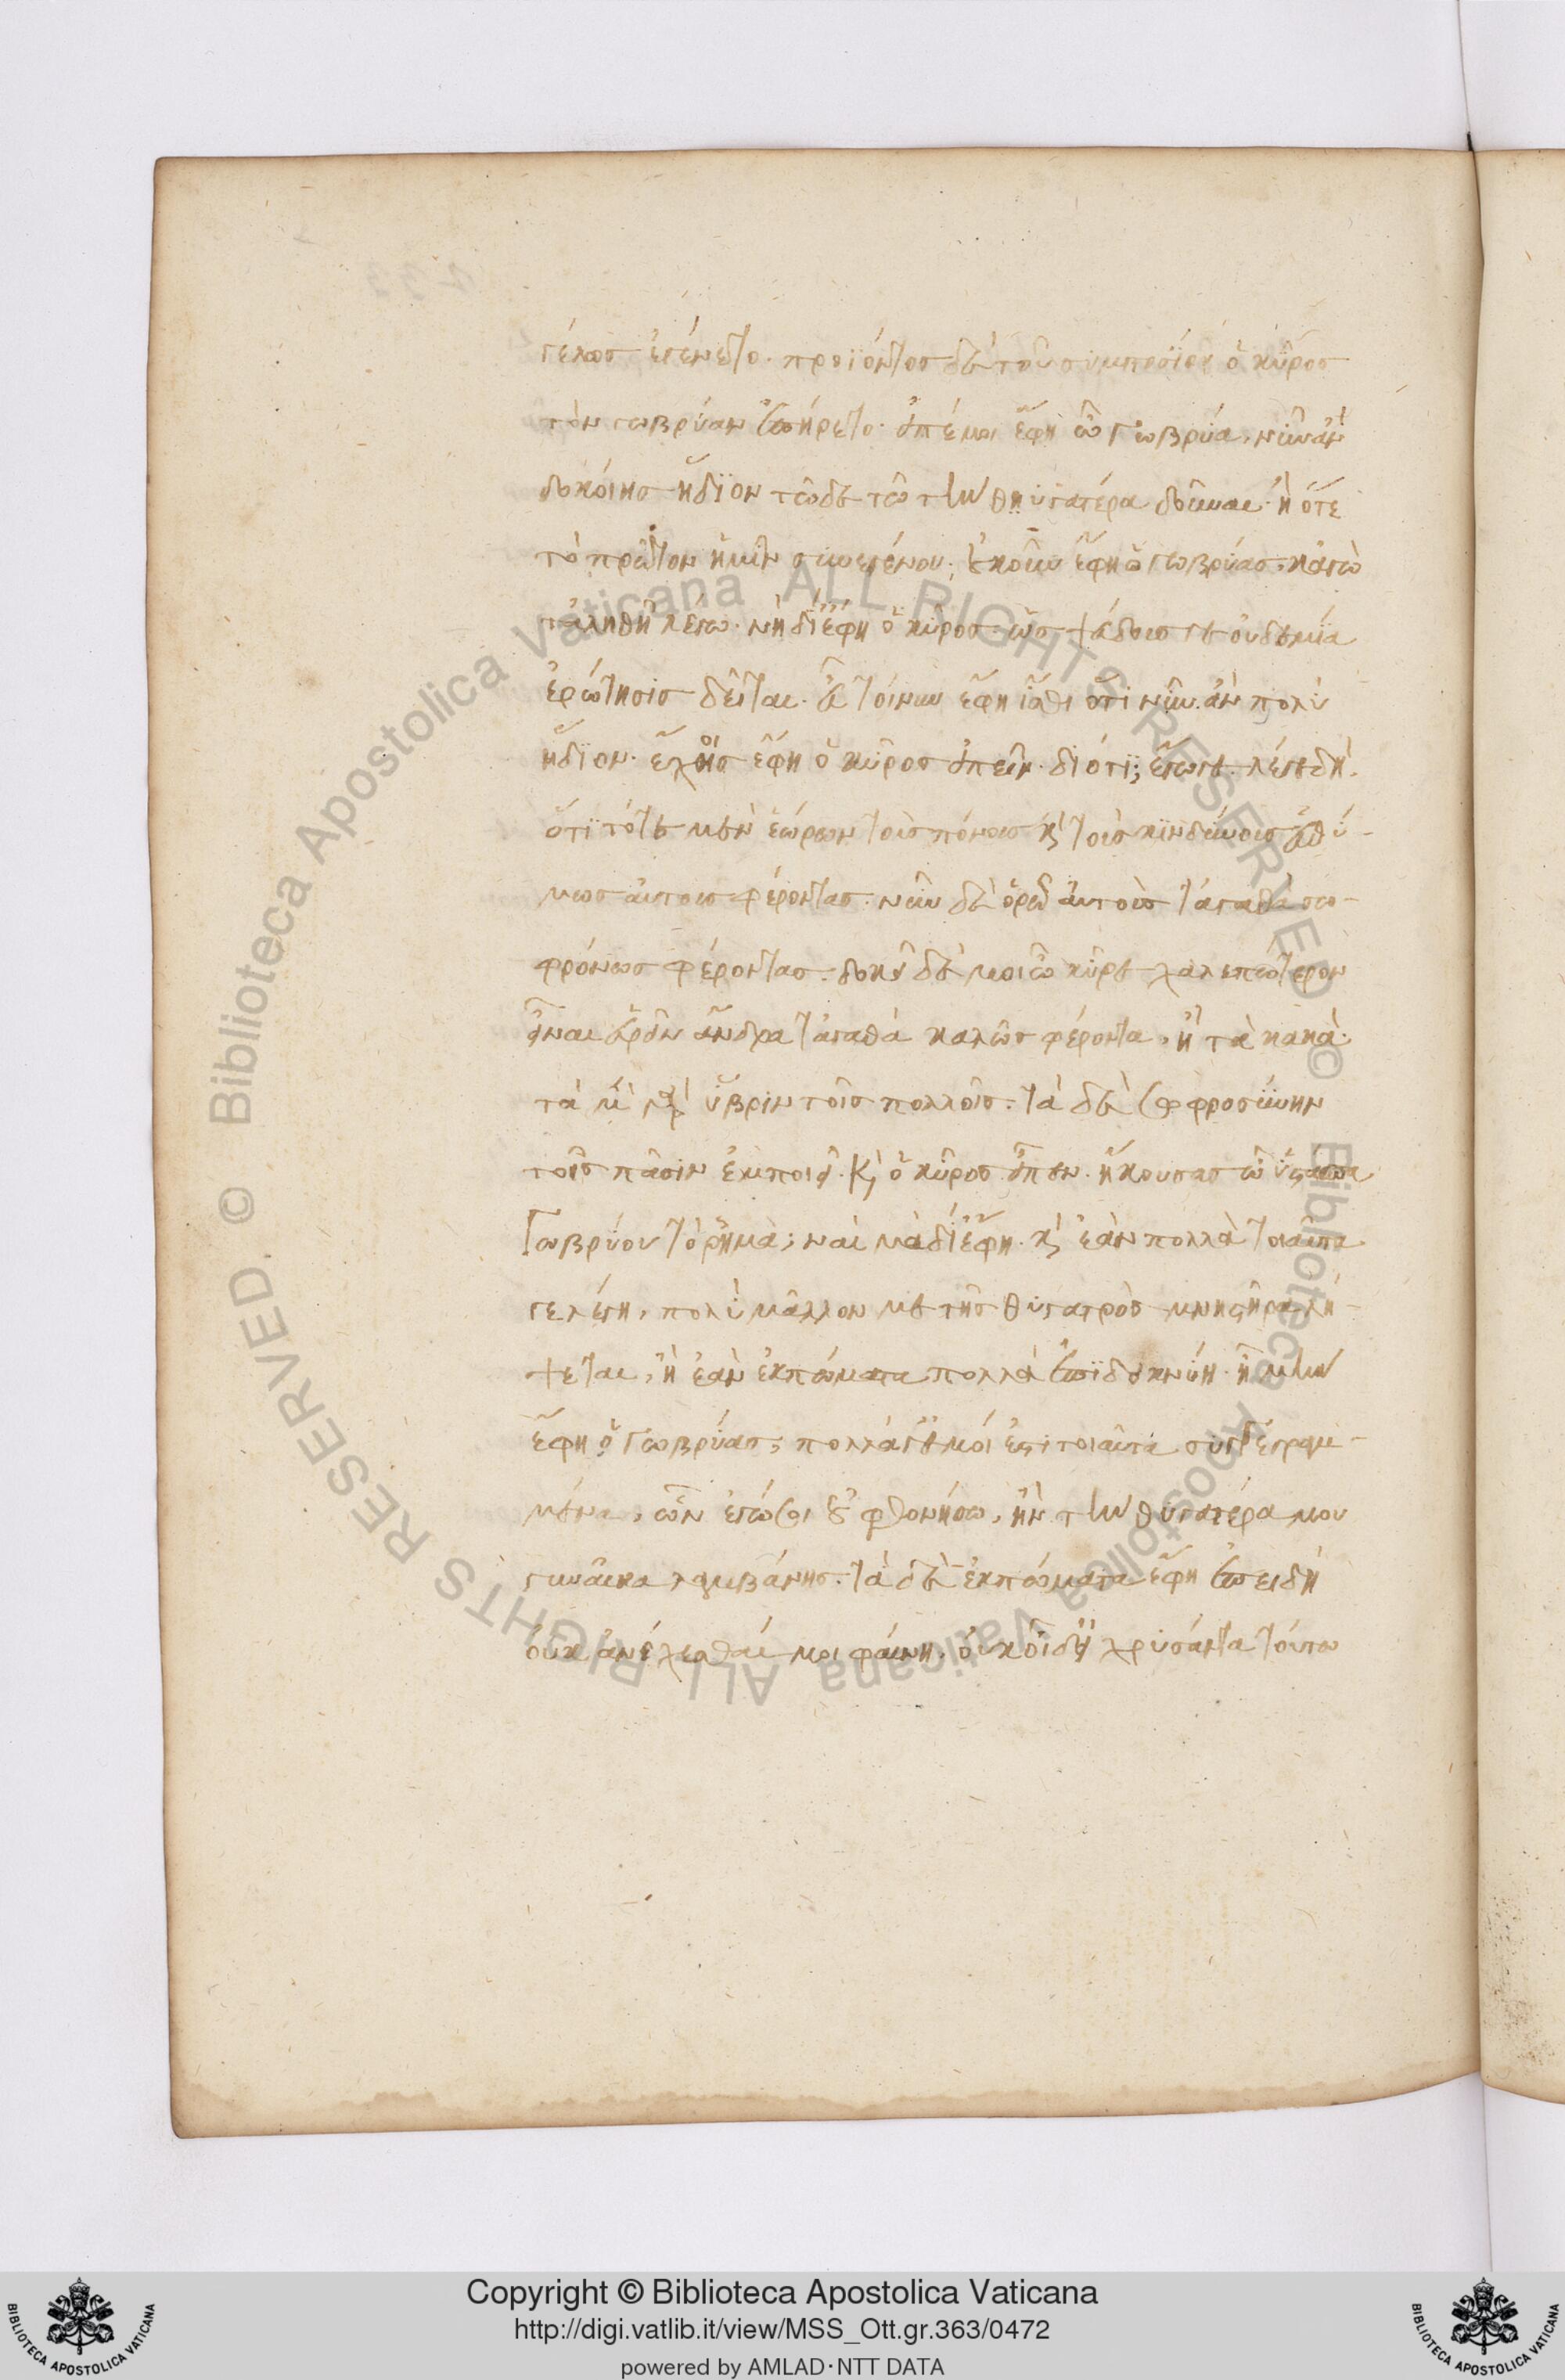 γέλως ἐγένετο· προϊόντος δὲ τοῦ συμποσίου ὁ κῦρος
τὸν γωβρύαν ἐπήρετο· εἰπέ μοι ἔφη ὦ Γωβρύα, νῦν ἂν
δοκοίης ἥδϊον τῶδε τῶ τὴν θυγατέρα δοῦναι· ἢ ὅτε
τὸ πρῶτον ἡμῖν συνεγένου; οὐκοῦν ἔφη ὁ γωβρύας, κἀγὼ
τἀληθῆ λέγω· νὴ δί' ἔφη ὁ κῦρος· ὡς ψεύδους γε οὐδεμία
ἐρώτησις δεῖται· εὖ τοίνυν ἔφη ἴσθι ὅτι νῦν ἂν πολὺ
ἥδϊον· ἔχοις ἔφη ὁ κῦρος εἰπεῖν· διότϊ; ἔγωγε· λέγε δή.
ὅτϊ τότε μὲν ἑώρων τοὺς πόνους καὶ τοὺς κϊνδύνους εὐθύ-
μως αὐτοὺς φέροντας· νῦν δὲ ὁρῶ αὐτοὺς τἀγαθὰ σω-
φρόνως φέροντας· δοκεῖ δέ μοι ὦ κῦρε χαλεπώτερον
εἶναι εὑρεῖν ἄνδρα τἀγαθὰ καλῶς φέροντα, ἢ τὰ κακά·
τὰ μὲν γὰρ ὕβριν τοῖς πολλοῖς· τὰ δὲ σωφροσύνην
τοῖς πᾶσιν ἐμποιεῖ· καὶ ὁ κῦρος εἶπεν· ἤκουσας ὦ ὕστασπα
Γωβρύου τὸ ῥῆμα; ναὶ μὰ δί' ἔφη· καὶ ἐὰν πολλὰ τοιαῦτα
γε λέγη, πολὺ μᾶλλον με τῆς θυγατρὸς μνηστῆρα λή-
ψεται, ἢ ἐὰν ἐκπώματα πολλὰ ἐπϊδεικνύη· ἦ μὴν
ἔφη ὁ Γωβρύας, πολλά γε μοί ἐστι τοιαῦτα συγγεγραμ-
μένα, ὧν ἐγώ σοι οὐ φθονήσω, ἢν τὴν θυγατέρα μου
γυναῖκα λαμβάνης· τὰ δὲ ἐκπώματα ἔφη ἐπειδὴ
οὐκ ἀνέχεσθαί μοι φαίνη, οὐκ οἶδ' εἰ χρυσάντα τούτω